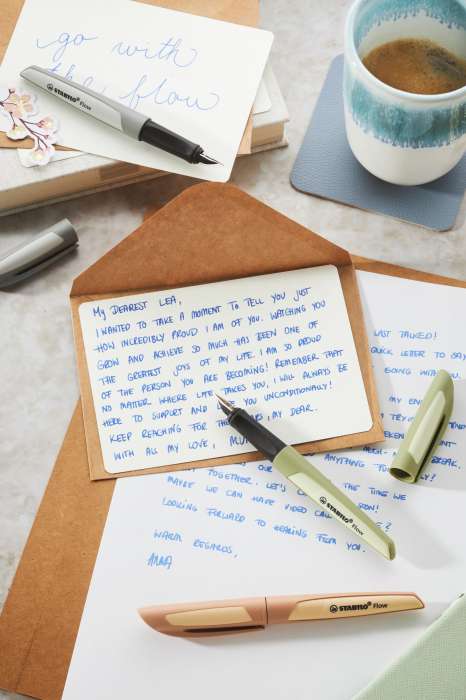 go with
the flow
STABILO Flow
MY DEAREST LEA,
I WANTED TO TAKE A MOMENT TO TELL YOU JUST
HOW INCREDIBLY PROUD I AM OF YOU. WATCHING YOU
GROW AND ACHIEVE SO MUCH HAS BEEN ONE OF
THE GREATEST JOYS OF MY LIFE. I AM SO PROUD
OF THE PERSON YOU ARE BECOMING! REMEMBER THAT
NO MATTER WHERE LIFE TAKES YOU, I WILL ALWAYS BE
HERE TO SUPPORT AND YOU UNCONDITIONALLY!
KEEP REACHING FOR THE MY DEAR.
WITH ALL MY LOVE,
LAST TALKED!
QUICK LETTER TO SAY
GOING WITH YOU.
MY
BREAK.
ANYTHING
TOGETHER. LET'S THE TIME WE
MAYBE WE CAN HAVE VIDEO CALL
LOOKING FORWARD TO HEARING FROM YOU.
WARM REGARDS,
ANNA
STABILO Flow
STABILO Flow